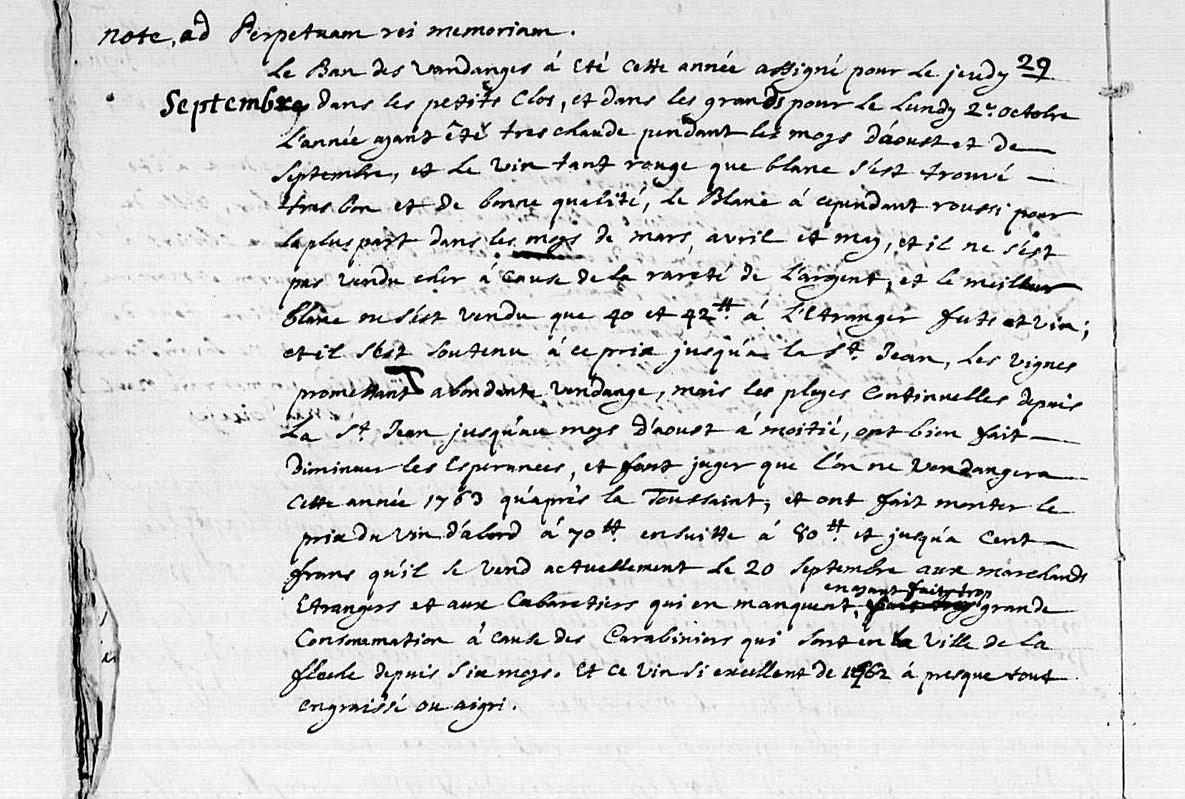 note, ad Perpetuam rei memoriam.
Le Ban des vandanges à été cette année assigné pour le jeudy 29
Septembre, dans les petits Clos, et dans les grands pour le Lundy 2e. octobre
L'année ayant êté tres chaude pendant les moys d'aoust et de
Septembre, et le vin tant rouge que blanc s'est trouvé
tres bon et de bonne qualité, le Blanc à cependant roussi pour
la plus part dans les moys de mars, avril et may, et il ne s'est
pas vendu cher à cause de la rareté de l'argent, et le meilleur
blanc ne s'est vendu que 40 et 42tt. à l'Etranger futs et vin;
et il s'est soutenu à ce prix jusqu'a la St. Jean, les vignes
promettant abondante vendange, mais les pluyes continuelles depuis
la St. Jean jusqu'au moys d'aoust à moitié, ont bien fait
diminuer les Esperances, et font juger que l'on ne vendangera
cette année 1763 qu'après la Toussaint, et ont fait monter le
prix du vin d'abord à 70tt ensuitte à 80tt. et jusqu'a Cent
frans qu'il se vend actuellement le 20 septembre aux marchands
Etrangers et aux Cabaretiers qui en manquent, en ayant fait trop grande
Consommation à cause des Carabiniers qui sont en la ville de la
fleche depuis six moys. Et ce vin si excellent de 1762 à presque tout
engraissé ou aigri.